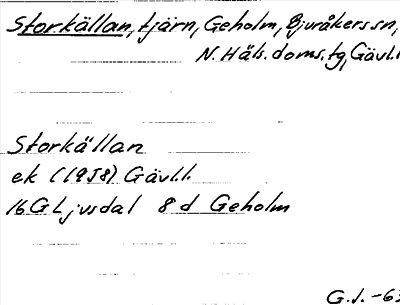 Storkällan, tjärn, Geholm, Bjuråkers sn,
N. Häls. doms. tg, Gävl.l.
Storkällan
ek (1958) Gävl.l.
16 G Ljusdal 8 d Geholm
G.J. -63